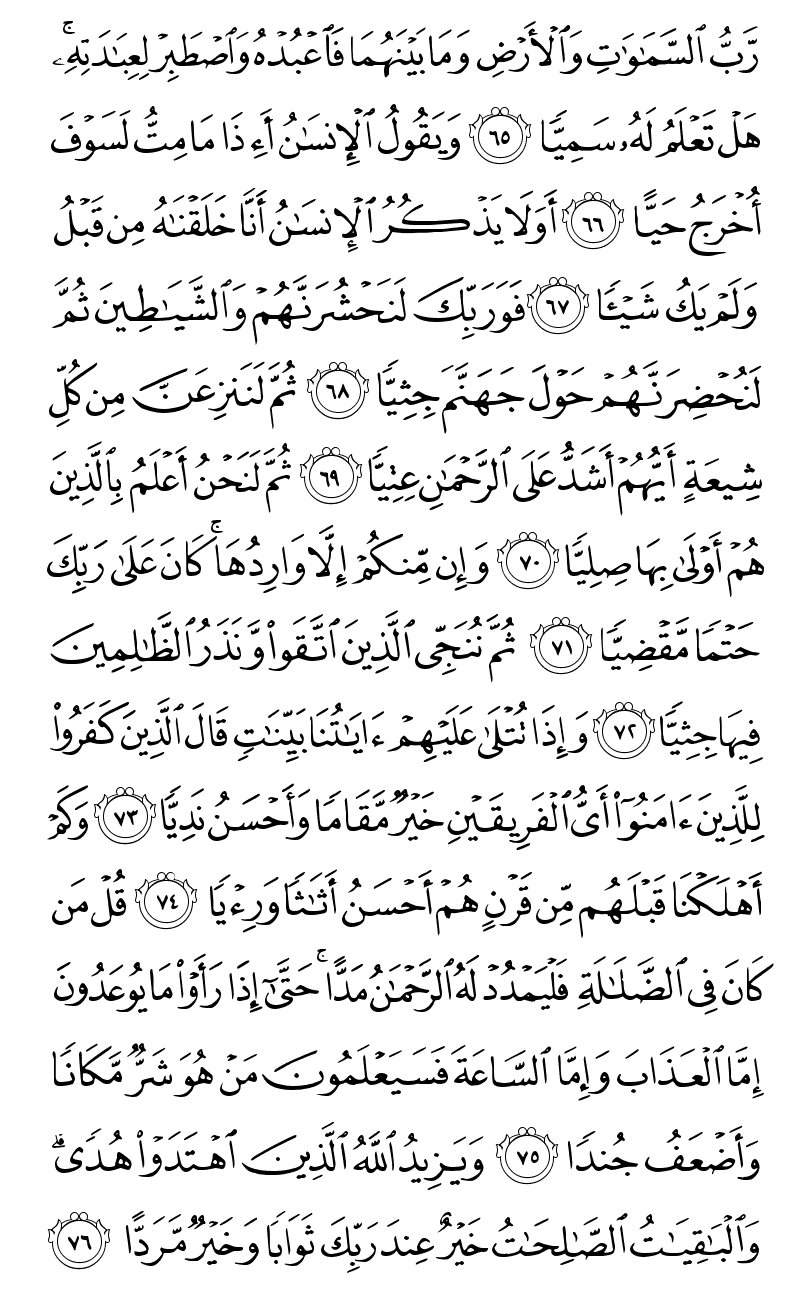 رَّبُّ ٱلسَّمَـٰوَٰتِ وَٱلْأَرْضِ وَمَا بَيْنَهُمَا فَٱعْبُدْهُ وَٱصْطَبِرْ لِعِبَـٰدَتِهِۦ ۚ
هَلْ تَعْلَمُ لَهُۥ سَمِيًّا ٦٥ وَيَقُولُ ٱلْإِنسَـٰنُ أَءِذَا مَا مِتُّ لَسَوْفَ
أُخْرَجُ حَيًّا ٦٦ أَوَلَا يَذْكُرُ ٱلْإِنسَـٰنُ أَنَّا خَلَقْنَـٰهُ مِن قَبْلُ
وَلَمْ يَكُ شَيْـًٔا ٦٧ فَوَرَبِّكَ لَنَحْشُرَنَّهُمْ وَٱلشَّيَـٰطِينَ ثُمَّ
لَنُحْضِرَنَّهُمْ حَوْلَ جَهَنَّمَ جِثِيًّا ٦٨ ثُمَّ لَنَنزِعَنَّ مِن كُلِّ
شِيعَةٍ أَيُّهُمْ أَشَدُّ عَلَى ٱلرَّحْمَـٰنِ عِتِيًّا ٦٩ ثُمَّ لَنَحْنُ أَعْلَمُ بِٱلَّذِينَ
هُمْ أَوْلَىٰ بِهَا صِلِيًّا ٧٠ وَإِن مِّنكُمْ إِلَّا وَارِدُهَا ۚ كَانَ عَلَىٰ رَبِّكَ
حَتْمًا مَّقْضِيًّا ٧١ ثُمَّ نُنَجِّى ٱلَّذِينَ ٱتَّقَوا۟ وَّنَذَرُ ٱلظَّـٰلِمِينَ
فِيهَا جِثِيًّا ٧٢ وَإِذَا تُتْلَىٰ عَلَيْهِمْ ءَايَـٰتُنَا بَيِّنَـٰتٍ قَالَ ٱلَّذِينَ كَفَرُوا۟
لِلَّذِينَ ءَامَنُوٓا۟ أَىُّ ٱلْفَرِيقَيْنِ خَيْرٌ مَّقَامًا وَأَحْسَنُ نَدِيًّا ٧٣ وَكَمْ
أَهْلَكْنَا قَبْلَهُم مِّن قَرْنٍ هُمْ أَحْسَنُ أَثَـٰثًا وَرِءْيًا ٧٤ قُلْ مَن
كَانَ فِى ٱلضَّلَـٰلَةِ فَلْيَمْدُدْ لَهُ ٱلرَّحْمَـٰنُ مَدًّا ۚ حَتَّىٰٓ إِذَا رَأَوْا۟ مَا يُوعَدُونَ
إِمَّا ٱلْعَذَابَ وَإِمَّا ٱلسَّاعَةَ فَسَيَعْلَمُونَ مَنْ هُوَ شَرٌّ مَّكَانًا
وَأَضْعَفُ جُندًا ٧٥ وَيَزِيدُ ٱللَّهُ ٱلَّذِينَ ٱهْتَدَوْا۟ هُدًى ۗ
وَٱلْبَـٰقِيَـٰتُ ٱلصَّـٰلِحَـٰتُ خَيْرٌ عِندَ رَبِّكَ ثَوَابًا وَخَيْرٌ مَّرَدًّا ٧٦